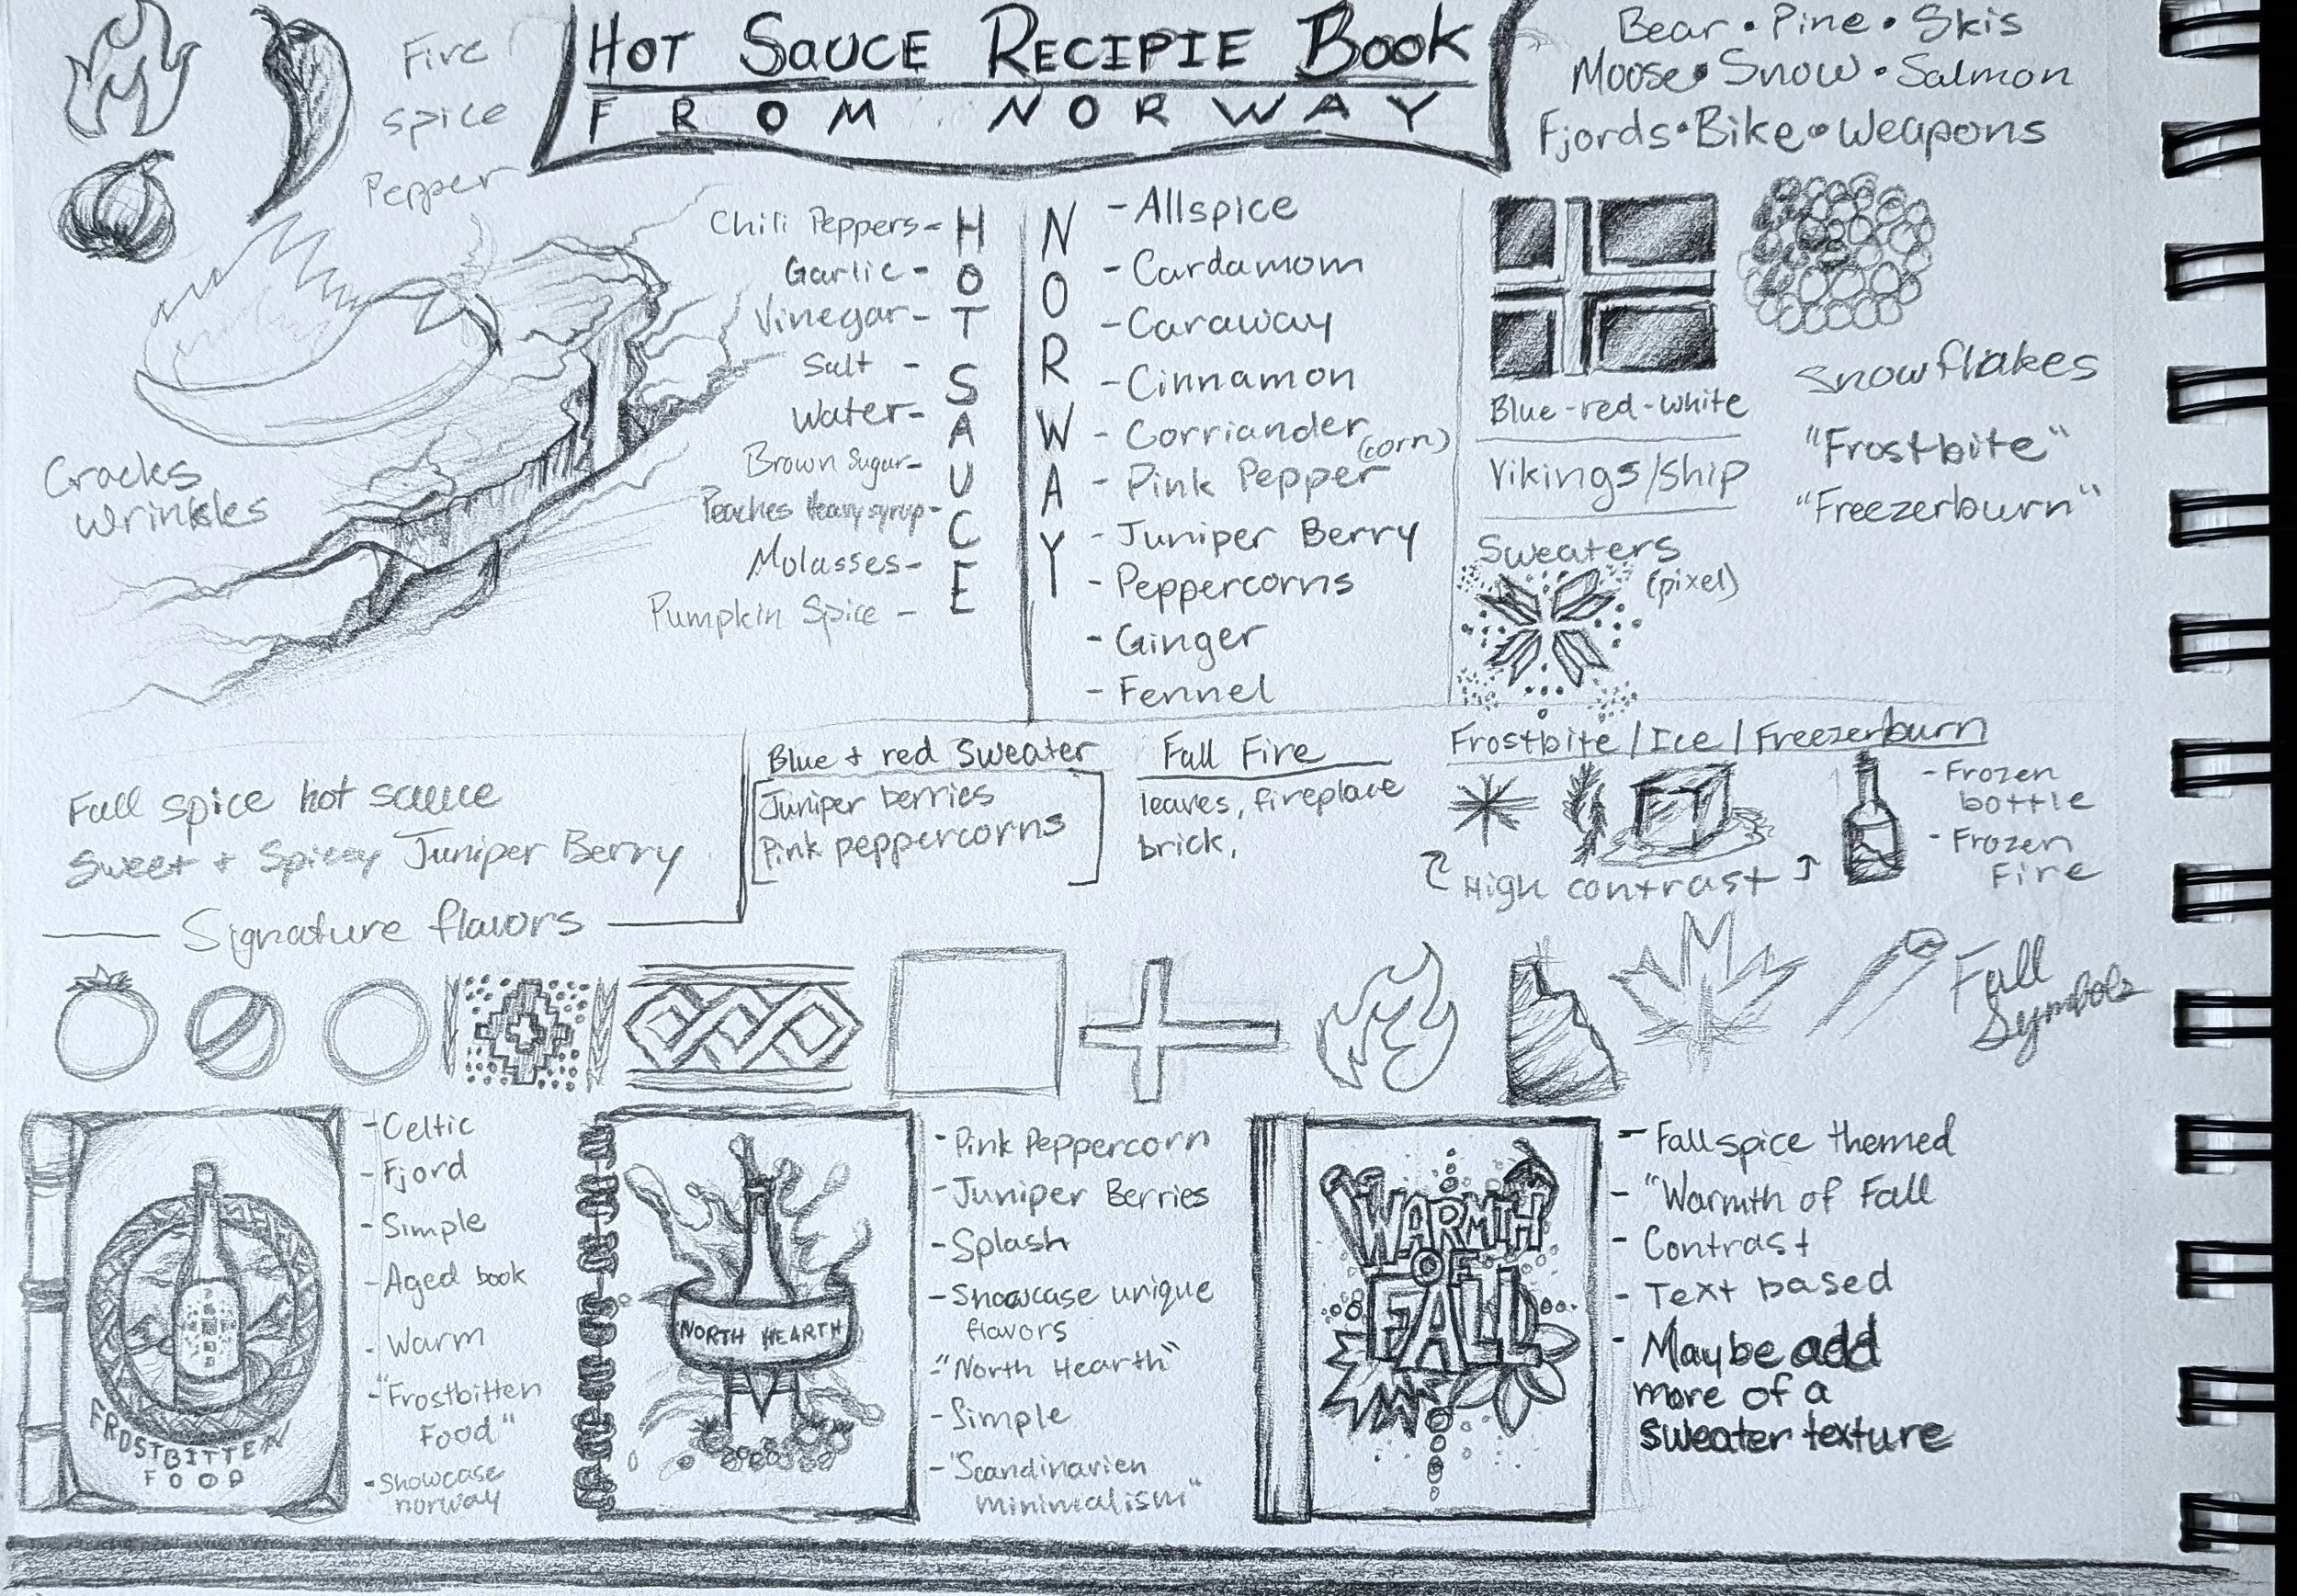 HOT SAUCE RECIPIE BOOK
FROM NORWAY
Fire
spice
Pepper
Bear • Pine • Skis
Moose • Snow • Salmon
Fjords • Bike • Weapons
Cracks
Wrinkles
HOT SAUCE
Chili Peppers-
Garlic -
Vinegar-
Salt -
Water-
Brown Sugar-
Peaches Heavy syrup-
Molasses-
Pumpkin Spice -
NORWAY
- Allspice
- Cardamom
- Caraway
- Cinnamon
- Corriander
- Pink Pepper (corn)
- Juniper Berry
- Peppercorns
- Ginger
- Fennel
Blue-red-white
Vikings/ship
Sweaters
(pixel)
Snowflakes
"Frostbite"
"Freezerburn"
Fall spice hot sauce
Sweet + Spicey Juniper Berry
Signature flavors
Blue + red Sweater
Juniper berries
Pink peppercorns
Fall Fire
leaves, fireplace
brick,
Frostbite / Ice / Freezerburn
High contrast
- Frozen
bottle
- Frozen
Fire
Fall
Symbols
FROSTBITTEN
FOOD
- Celtic
- Fjord
- Simple
- Aged book
- Warm
- "Frostbitten
Food"
- Showcase
norway
NORTH HEARTH
- Pink Peppercorn
- Juniper Berries
- Splash
- Showcase unique
flavors
- "North Hearth"
- Simple
- "Scandinavien
minimalism"
WARMTH
OF
FALL
- Fallspice themed
- "Warmth of Fall
- Contrast
- Text based
- Maybe add
more of a
sweater texture